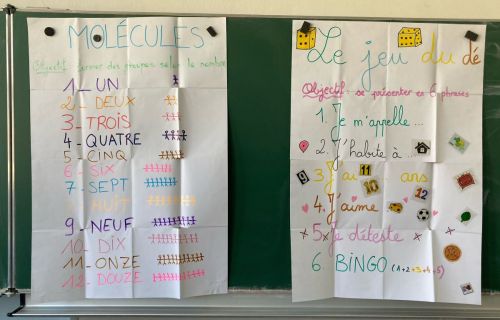 MOLÉCULES
Objectif : former des groupes selon le nombre
1 - UN
2 - DEUX
3 - TROIS
4 - QUATRE
5 - CINQ
6 - SIX
7 - SEPT
8 - HUIT
9 - NEUF
10 - DIX
11 - ONZE
12 - DOUZE
Le jeu du dé
Objectif : se présenter en 6 phrases
1. Je m'appelle ...
2. J'habite à ....
3. J'ai ... ans
9 11 10
4. J'aime
12
5. Je déteste
6. BINGO (1+2+3+4+5)